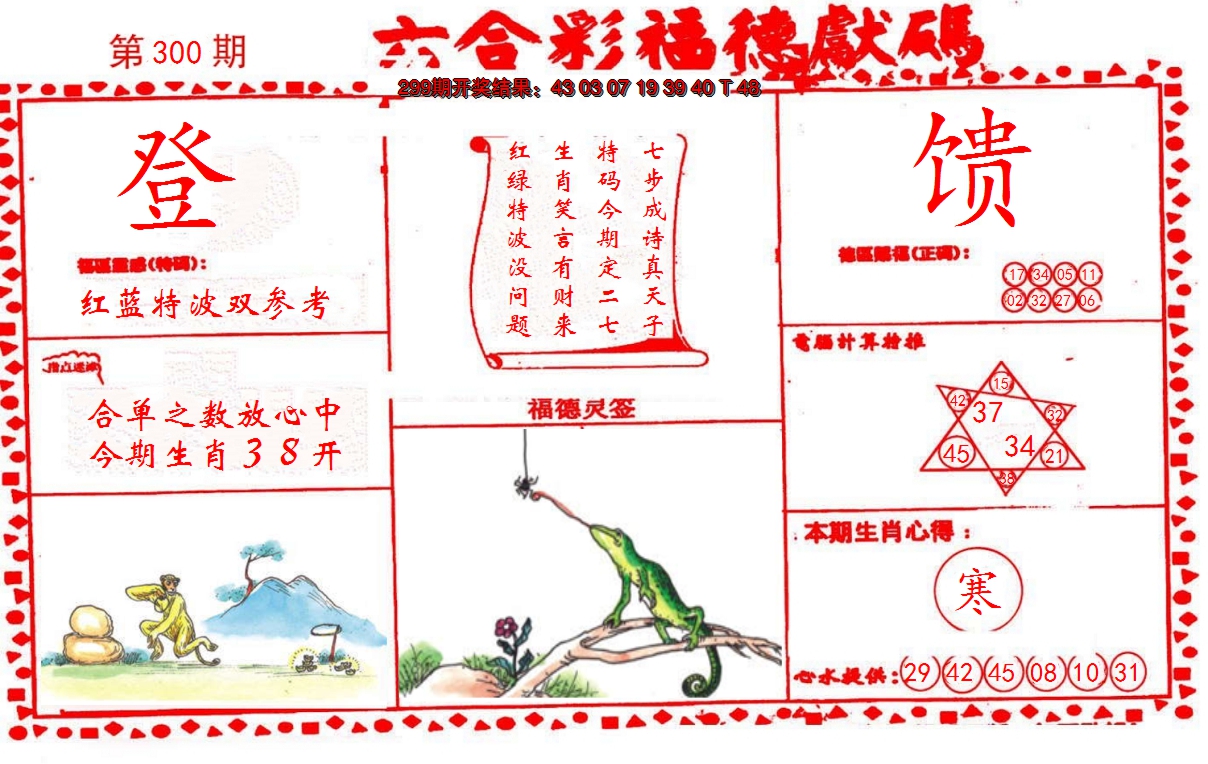 第300期
六合彩福德獻碼
299期开奖结果：43 03 07 19 39 40 T 48
登
福區靈感(特碼)：
红蓝特波双参考
指点迷津
合单之数放心中
今期生肖38开
七步成诗真天子
特码今期定二七
生肖笑言有财来
红绿特波没问题
福德灵签
馈
德區賜福(正碼)：
17 34 05 11
02 32 27 06
電腦計算推
15
42 37 32
45 34 21
38
本期生肖心得：
寒
心水提供：29 42 45 08 10 31